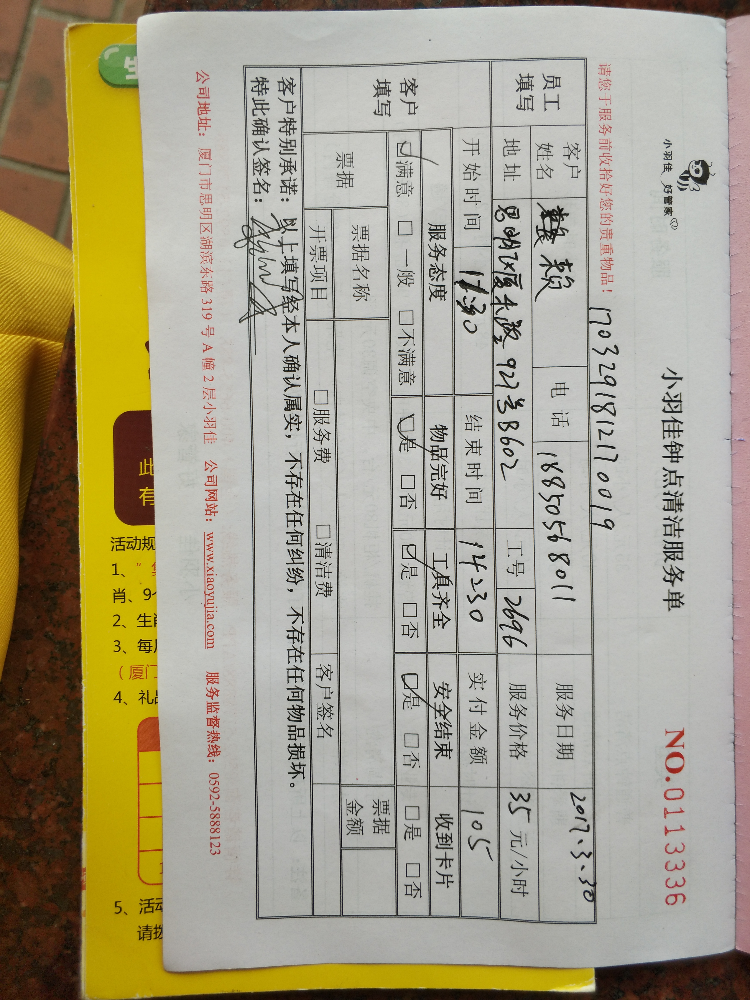 小羽佳 好管家
小羽佳钟点清洁服务单
NO.0113336
请您于服务前收拾好您的贵重物品!
170329181217 0019
员工填写 客户姓名 电话 18850568011 服务日期 2017.3.30
地址 思明区厦禾路927号B602 工号 2696 服务价格 35元/小时
客户填写 开始时间 11:30 结束时间 14:30 实付金额 105
服务态度 物品完好 工具齐全 安全结束 收到卡片
☑满意 □一般 □不满意 ☑是 □否 ☑是 □否 ☑是 □否 □是 □否
票据 票据名称 票据金额
开票项目 □服务费 □清洁费 客户签名
客户特别承诺:以上填写经本人确认属实,不存在任何纠纷,不存在任何物品损坏。
特此确认签名:
公司地址:厦门市思明区湖滨东路319号A幢2层小羽佳 公司网站:www.xiaoyujia.com 服务监督热线:0592-5888123
此
有
活动规
1、
肖、9个
2、生肖
3、每
(厦门
4、礼品
5、活动
请拨